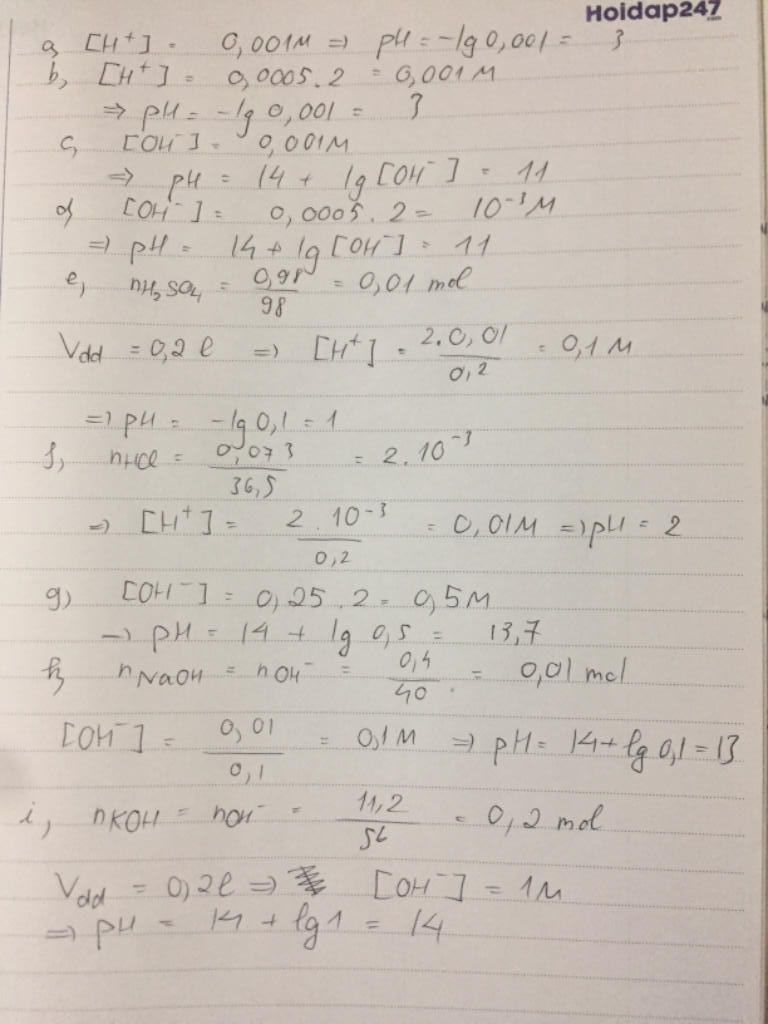 Hoidap247.com
a, [H⁺] = 0,001M => pH = -lg 0,001 = 3
b, [H⁺] = 0,0005.2 = 0,001M
=> pH = -lg 0,001 = 3
c, [OH⁻] = 0,001M
=> pH = 14 + lg [OH⁻] = 11
d, [OH⁻] = 0,0005.2 = 10⁻³M
=> pH = 14 + lg [OH⁻] = 11
e, nH₂SO₄ = 0,98/98 = 0,01 mol
Vdd = 0,2 l => [H⁺] = 2.0,01/0,2 = 0,1M
=> pH = -lg 0,1 = 1
f, nHCl = 0,073/36,5 = 2.10⁻³
=> [H⁺] = 2.10⁻³/0,2 = 0,01M => pH = 2
g) [OH⁻] = 0,25.2 = 0,5M
-> pH = 14 + lg 0,5 = 13,7
h, nNaOH = nOH⁻ = 0,4/40 = 0,01 mol
[OH⁻] = 0,01/0,1 = 0,1M => pH = 14 + lg 0,1 = 13
i, nKOH = nOH⁻ = 11,2/56 = 0,2 mol
Vdd = 0,2l => [OH⁻] = 1M
=> pH = 14 + lg1 = 14